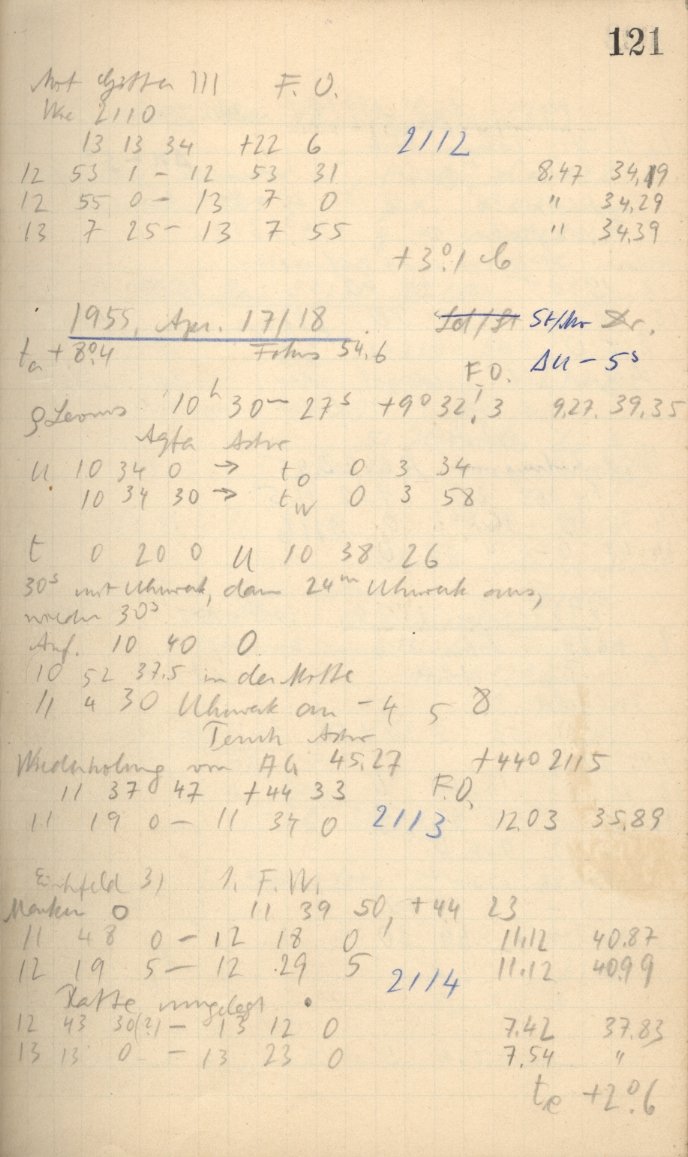 121
Mit Gitter III F. O.
Wie 2110
13 13 34 +22 6 2112
12 53 1 – 12 53 31 8,47 34,19
12 55 0 – 13 7 0 " 34,29
13 7 25 – 13 7 55 " 34,39
+3°,1 C
1955, Apr. 17/18 St/Mr
ta +8°,4 Fokus 54,6
F.O. ΔU – 5s
ρ Leonis 10h 30m 27s +9° 32',3 9,27. 39,35
Agfa Astro
U 10 34 0 → tO 0 3 34
10 34 30 → tW 0 3 58
t 0 20 0 U 10 38 26
30s mit Uhrwerk, dann 24m Uhrwerk aus,
wieder 30s
Anf. 10 40 0
10 52 37,5 in der Mitte
11 4 30 Uhrwerk an – 4 5 8
Astro
Wiederholung von AG 45,27 +44° 2115
11 37 47 +44 33 F.O.
11 19 0 – 11 34 0 2113 12,03 35,89
Eichfeld 31 1. F. W.
Marken O 11 39 50, +44 23
11 48 0 – 12 18 0 11,12 40,87
12 19 5 – 12 29 5 2114 11,12 40,99
Platte umgelegt
12 43 30(?) – 13 12 0 7,42 37,83
13 13 0 – 13 23 0 7,54 "
te +2°,6